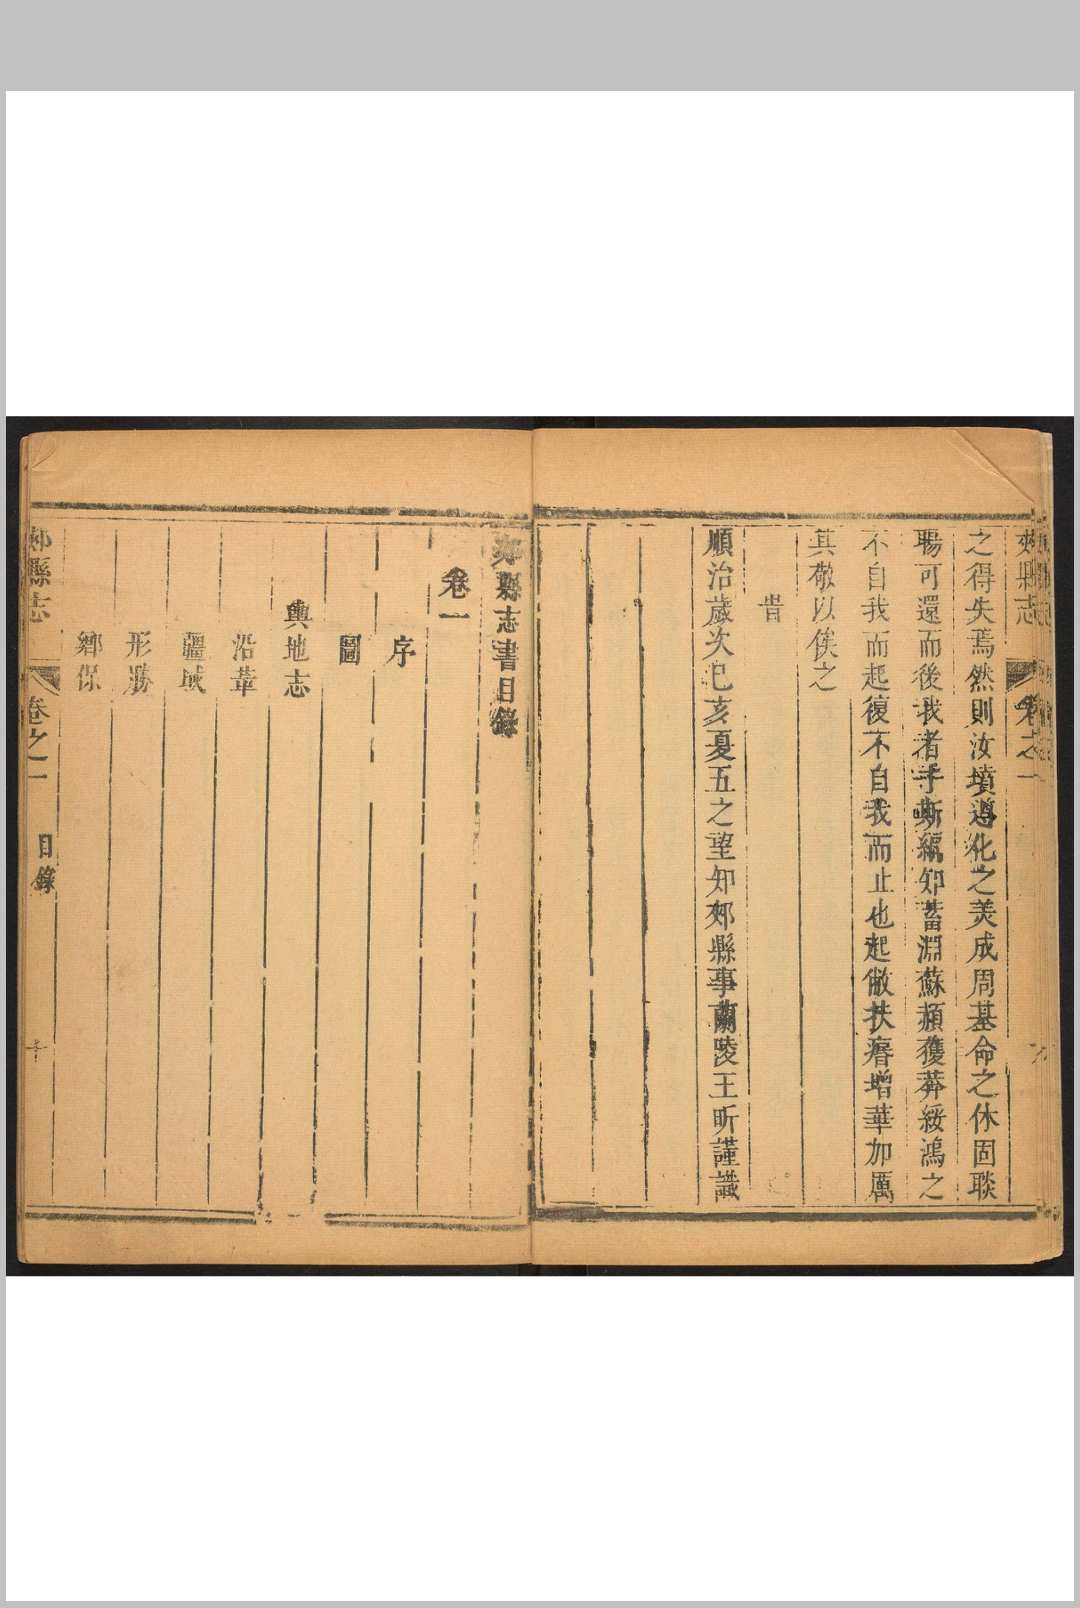 郟縣志
卷之一
之得失焉然則汝墳遵化之美成周基命之休固聡
暢可還而後我者手斯編知蓄淵蘇頳獲莾綏鴻之
不自我而起復不自我而止也起僘扶瘠增華加厲
其敬以俟之
時
順治歲次己亥夏五之望知郟縣事蘭陵王昕謹識
郟縣志書目錄
卷一
序
圖
輿地志
沿革
疆域
形勝
鄉保
郟縣志
卷之一
目錄